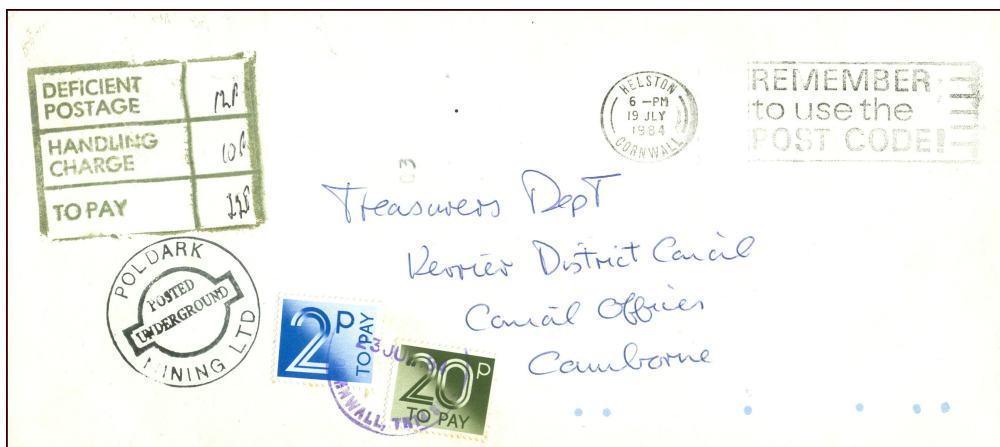 DEFICIENT POSTAGE 12P
HANDLING CHARGE 10P
TO PAY 22P
HELSTON
6 -PM
19 JLY
1984
CORNWALL
REMEMBER
to use the
POST CODE!
03
Treasurers Dept
Kerrier District Concil
Concil Offices
Camborne
POLDARK
POSTED
UNDERGROUND
MINING LTD
2P
TO PAY
20P
TO PAY